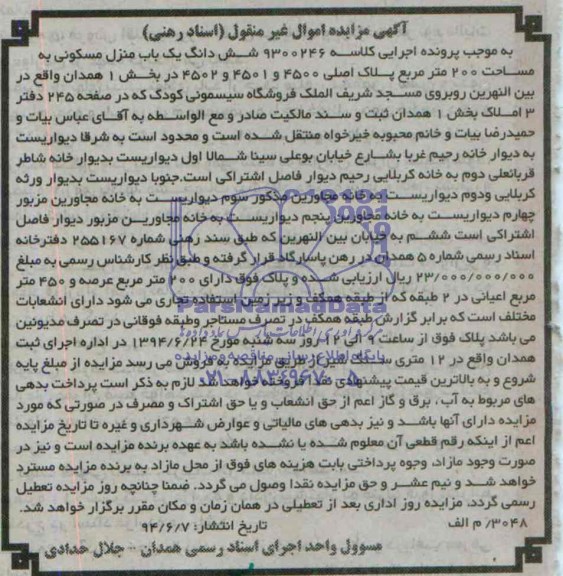 آگهی مزایده اموال غیر منقول (اسناد رهنی)
به موجب پرونده اجرایی کلاسه ۹۳۰۰۲۴۶ شش دانگ یک باب منزل مسکونی به
مساحت ۲۰۰ متر مربع پلاک اصلی ۴۵۰۰ و ۴۵۰۱ و ۴۵۰۲ در بخش ۱ همدان واقع در
بین النهرین روبروی مسجد شریف الملک فروشگاه سیسمونی کودک که در صفحه ۲۴۵ دفتر
۳ املاک بخش ۱ همدان ثبت و سند مالکیت صادر و مع الواسطه به آقای عباس بیات و
حمیدرضا بیات و خانم محبوبه خیرخواه منتقل شده است و محدود است به شرقا دیواریست
به دیوار خانه رحیم غربا بشارع خیابان بوعلی سینا شمالا اول دیواریست بدیوار خانه شاطر
قربانعلی دوم به خانه کربلایی رحیم دیوار فاصل اشتراکی است.جنوبا دیواریست بدیوار ورثه
کربلایی ودوم دیواریست به خانه مجاورین مذکور سوم دیواریست به خانه مجاورین مزبور
چهارم دیواریست به خانه مجاورین پنجم دیواریست به خانه مجاورین مزبور دیوار فاصل
اشتراکی است ششم به خیابان بین النهرین که طبق سند رهنی شماره ۲۵۵۱۶۷ دفترخانه
اسناد رسمی شماره ۵ همدان در رهن پاسارگاد قرار گرفته و طبق نظر کارشناس رسمی به مبلغ
۲۳/۰۰۰/۰۰۰/۰۰۰ ریال ارزیابی شده و پلاک فوق دارای ۲۰۰ متر مربع عرصه و ۴۵۰ متر
مربع اعیانی در ۲ طبقه که از طبقه همکف و زیر زمین استفاده تجاری می شود دارای انشعابات
مختلف است که برابر گزارش طبقه همکف در تصرف مستاجر وطبقه فوقانی در تصرف مدیونین
می باشد پلاک فوق از ساعت ۹ الی ۱۲ روز سه شنبه مورخ ۱۳۹۴/۶/۲۴ در اداره اجرای ثبت
همدان واقع در ۱۲ متری سنگ شیر از طریق مزایده به فروش می رسد مزایده از مبلغ پایه
شروع و به بالاترین قیمت پیشنهادی نقدا فروخته خواهد شد لازم به ذکر است پرداخت بدهی
های مربوط به آب ، برق و گاز اعم از حق انشعاب و یا حق اشتراک و مصرف در صورتی که مورد
مزایده دارای آنها باشد و نیز بدهی های مالیاتی و عوارض شهرداری و غیره تا تاریخ مزایده
اعم از اینکه رقم قطعی آن معلوم شده یا نشده باشد به عهده برنده مزایده است و نیز در
صورت وجود مازاد، وجوه پرداختی بابت هزینه های فوق از محل مازاد به برنده مزایده مسترد
خواهد شد و نیم عشر و حق مزایده نقدا وصول می گردد. ضمنا چنانچه روز مزایده تعطیل
رسمی گردد، مزایده روز اداری بعد از تعطیلی در همان زمان و مکان مقرر برگزار خواهد شد.
۳۰۴۸/ م الف تاریخ انتشار: ۹۴/۶/۷
مسوول واحد اجرای اسناد رسمی همدان - جلال حدادی
ParsNamadData
مرکز آوری اطلاعات پارس نماد داده ها
پایگاه اطلاع رسانی مناقصه و مزایده
۰۲۱-۸۸۳۴۹۶۷۰-۵